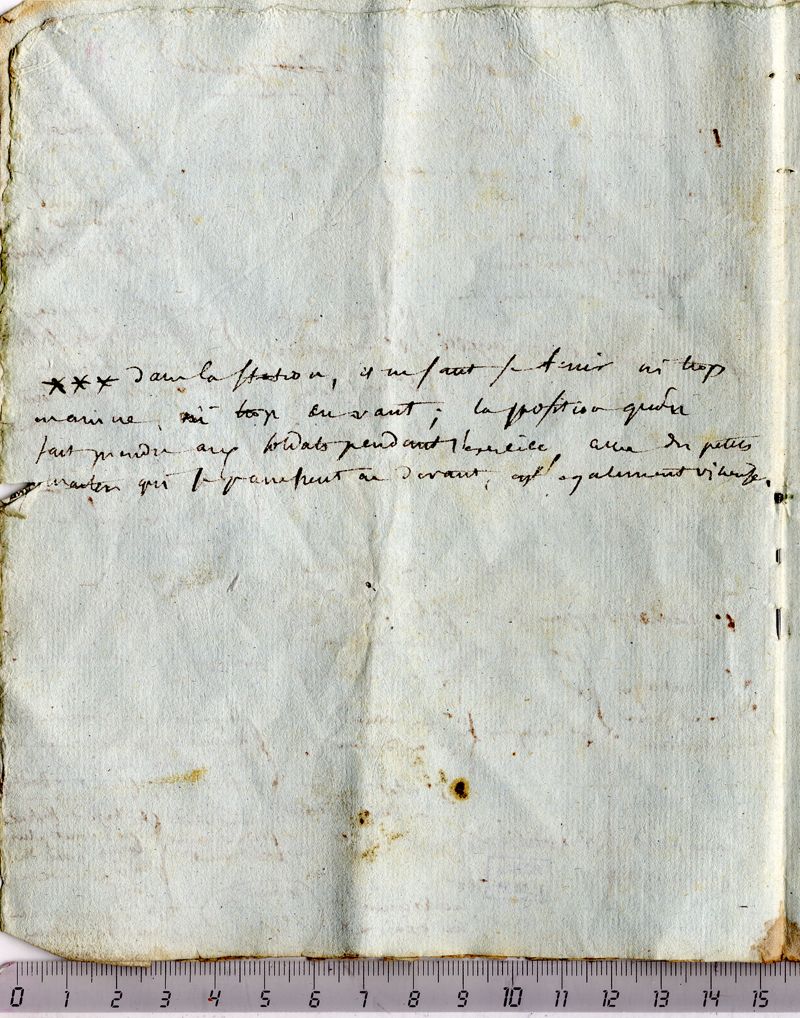 *** dans la station, il ne faut se tenir ni trop
en arriere, ni trop en avant; la position qu'on
fait prendre aux soldats pendant l'exercice, celle des petits
qui se panchent en devant, est egalement vicieuse.
0 1 2 3 4 5 6 7 8 9 10 11 12 13 14 15